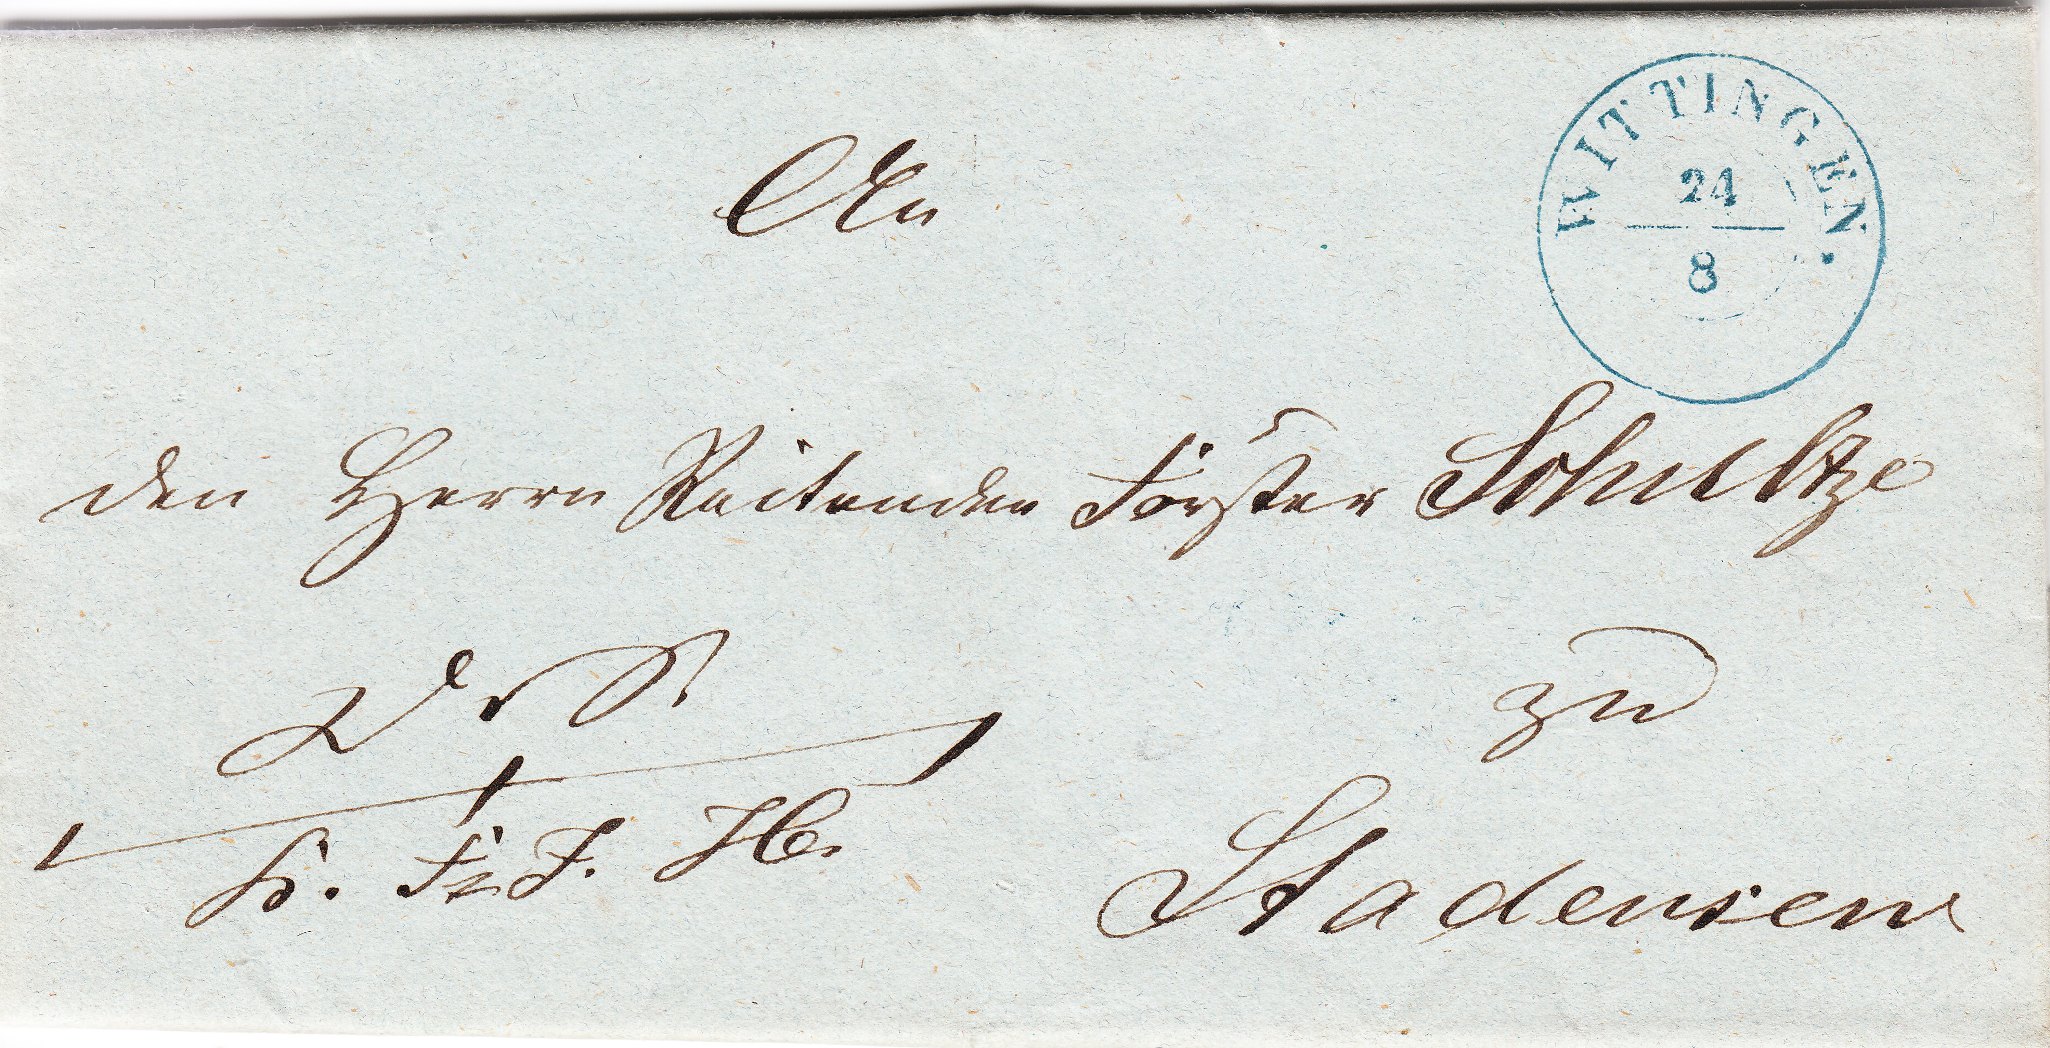 WITTINGEN.
24
8
An
den Herrn Reitenden Förster Schultze
zu
Stadensen